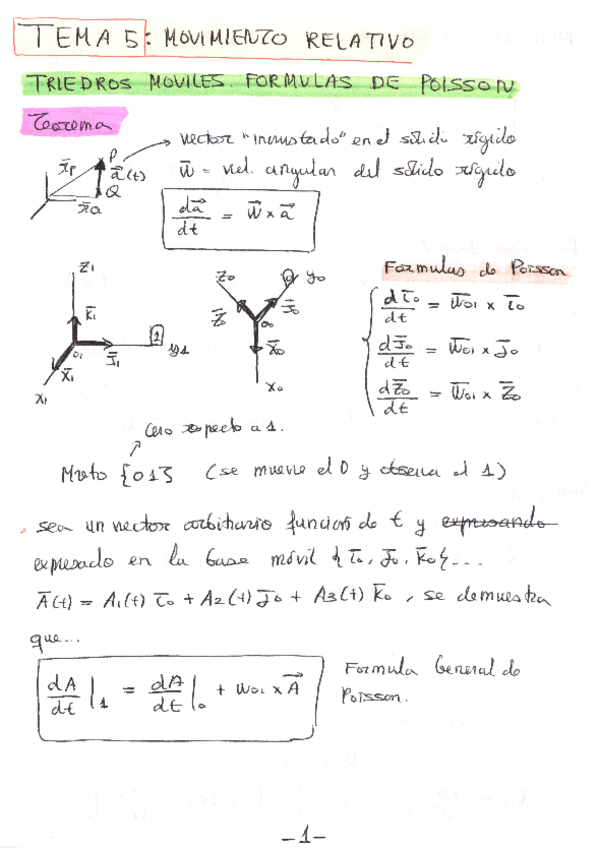 TEMA 5: MOVIMIENTO RELATIVO
TRIEDROS MOVILES. FORMULAS DE POISSON
Teorema
vector "incrustado" en el sólido rígido
x̄p P a⃗(t) Q x̄Q
w̄ = vel. angular del sólido rígido
da⃗/dt = w⃗ x a⃗
Formulas de Poisson
z1 k̄1 o1 j̄1 1 y1 x̄1 x1
z0 z̄0 o0 0 y0 j̄0 x̄0 x0
dī0/dt = w̄01 x ī0
dj̄0/dt = w̄01 x j̄0
dz̄0/dt = w̄01 x z̄0
cero respecto a 1.
Mvto {01} (se mueve el 0 y observa el 1)
. sea un vector arbitrario función de t y expresando
expresado en la base móvil {ī0, j̄0, k̄0}...
Ā(t) = A1(t) ī0 + A2(t) j̄0 + A3(t) k̄0, se demuestra
que...
dA/dt |1 = dA/dt |0 + w01 x A⃗
Formula General de
Poisson.
-1-